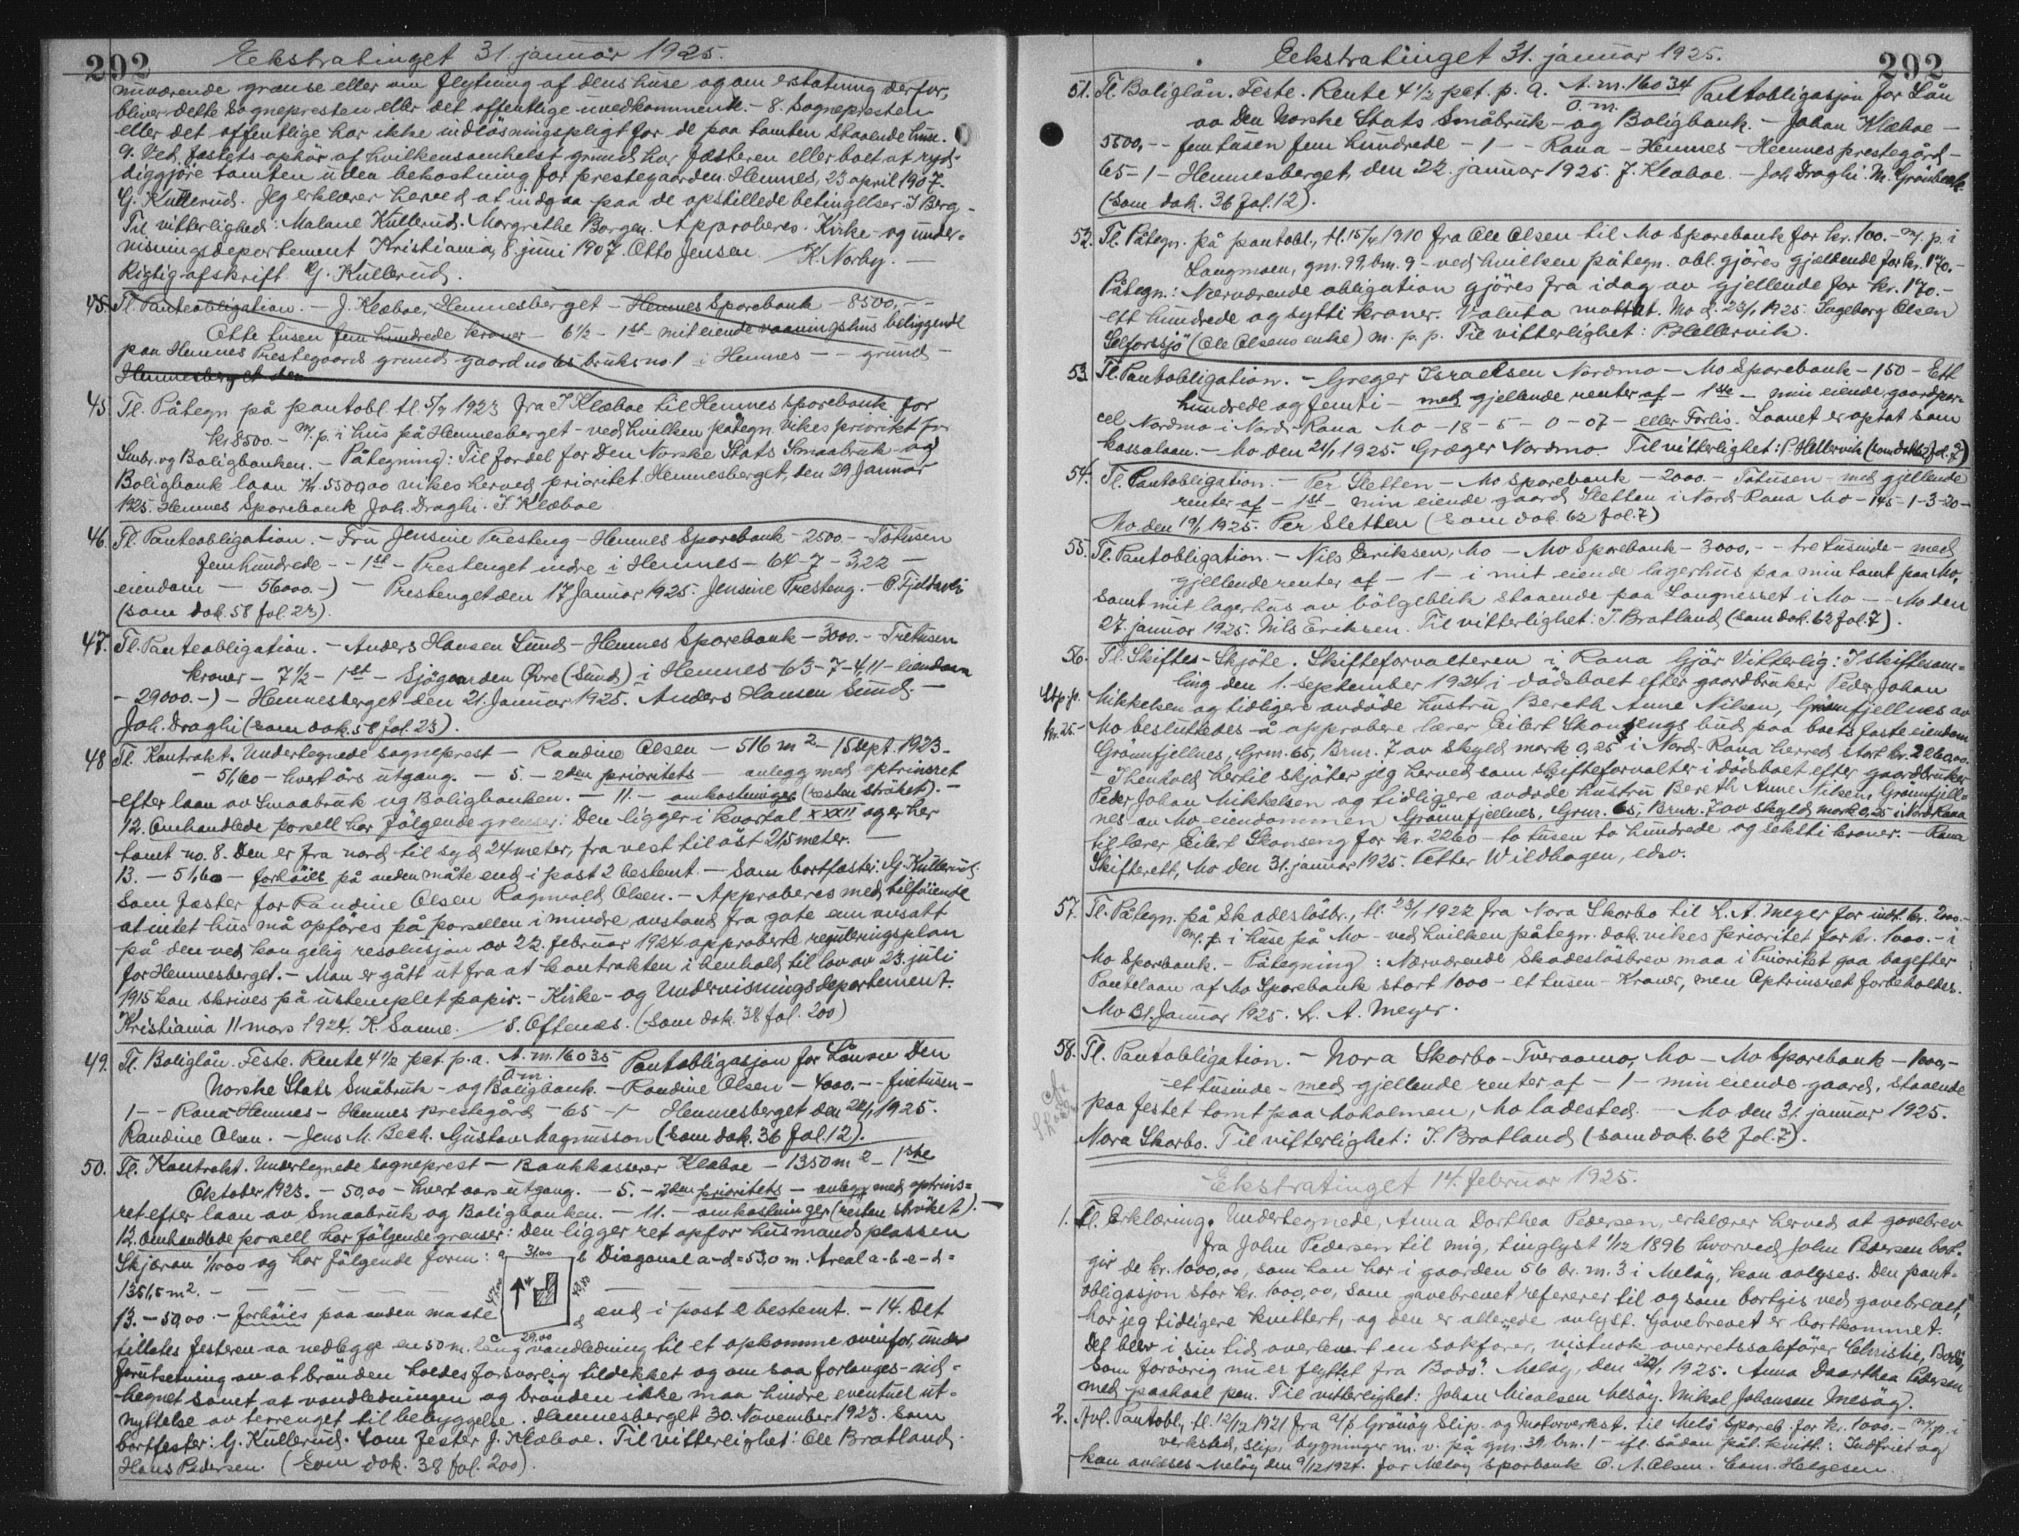 292 Ekstratinget 31. januar 1925.
nuværende grænse eller om flytning af dens huse og om erstatning derfor,
bliver dette sognepresten eller det offentlige uvedkommende. - 8. Sognepresten
eller det offentlige har ikke indlösningspligt for de paa tomten staaende huse.
9. Ved fæstets ophör af hvilkensomhelst grund har fæsteren eller boet at ryd-
diggjöre tomten uden bekostning for prestegaarden. Hemnes, 23 april 1907.
G. Kullerud. Jeg erklærer herved at indgaa paa de opstillede betingelser. J Berg -
Til vitterlighed: Malene Kullerud. Margrethe Borgen. Approberes. Kirke- og under-
visningsdepartement Kristiania, 8. juni 1907. Otto Jensen / K. Norby. -
Rigtig afskrift G. Kullerud.
45. Tl. Panteobligation. - J. Klæboe, Hemnesberget - Hemnes Sparebank - 8500,- -
Otte tusen fem hundrede kroner - 6½ - 1st - mit eiende vaaningshus beliggende
paa Hemnes Prestegaards grund gaard no 65 bruks no 1 i Hemnes - - grund -
Hemnesberget den
45. Tl. Påtegn på pantobl. tl. 5/7 1923 fra J Klæboe til Hemnes sparebank for
kr 8500.- m/. p. i hus på Hemnesberget - ved hvilken påtegn. vikes prioritet for
Smbr. og Boligbanken. - Påtegning: Til fordel for Den Norske Stats Smaabruk- og
Boligbank laan Kr. 5500,00 vikes herved prioritet. Hemnesberget, den 29 Januar
1925. Hemnes Sparebank Joh. Draghi. J Klæboe
46. Tl. Panteobligation. - Fru Jensine Presteng - Hemnes Sparebank - 2500.- - Totusen
femhundrede - - 1st - Prestenget indre i Hemnes - 64 - 7 - 3,22 -
eiendom - 56000.-) - Prestenget den 17 Januar 1925. Jensine Presteng. - P. Fjeldavli
(som dok. 58 fol. 23).
47. Tl. Panteobligation. - Anders Hansen Sund - Hemnes Sparebank - 3000.- - Tretusen
kroner - 7½ - 1st - Sjögaarden Övre (Sund) i Hemnes - 63 - 7 - 4,11 - eiendom
- 29000.-) - Hemnesberget den 21. Januar 1925. Anders Hansen Sund. -
Joh. Draghi (som dok. 58 fol. 23).
48 Tl. Kontrakt. Undertegnede sogneprest - Randine Olsen - 516 m² - 15 sept. 1923 -
- 51,60 - hvert års utgang. - 5. - 2den prioritets - anlegg med optrinsret
efter laan av Smaabruk og Boligbanken. - 11. - omkostninger (resten ströket). -
12. Omhandlede parsell har fölgende grenser: Den ligger i kvartal XXXII og er her
tomt no. 8. Den er fra nord til syd 24 meter, fra vest til öst 21,5 meter. -
13. - 51,60 - forhöies på anden måte end i post 2 bestemt. - Som bortfæster: G. Kullerud.
Som fæster for Randine Olsen Ragnvald Olsen. - Approberes med tilföiende
at intet hus må opföres på parsellen i mindre avstand fra gate enn ansatt
på den ved kongelig resolusjon av 22. februar 1924 approberte reguleringsplan
for Hemnesberget. - Man er gått ut fra at kontrakten i henhold til lov av 23. juli
1915 kan skrives på ustemplet papir. - Kirke- og Undervisningsdepartement.
Kristiania 11 mars 1924. K. Sanne. / S. Oftenæs. (Som dok. 38 fol. 200)
49. Tl. Boliglån. Feste. Rente 4½ pct. p. a. A. m. 16035 / O. m. Pantobligasjon for Lån av Den
Norske Stats Småbruk- og Boligbank. - Randine Olsen - 4000.- - firetusen -
1 - - Rana - Hemnes - Hemnes prestegård - 65 - 1 - Hemnesberget den 22/1 1925.
Randine Olsen. - Jens M. Bech. Gustav Magnusson (som dok. 36 fol. 12).
50. Tl. Kontrakt. Undertegnede sogneprest - Bankkasserer Klæboe - 1350 m² - 1ste
Oktober 1923. - 50,00 - hvert aars utgang. - 5. - 2den prioritets - anlegg med optrins-
ret efter laan av Smaabruk og Boligbanken. - 11. - omkostninger (resten ströket). -
12. Omhandlede parsell har fölgende grenser: Den ligger ret opfor husmandsplassen
Skjæran 1/1000 og har fölgende form: a 31,00 b Diagonal a-d = 53,0 m. Areal a-b-c-d =
1351,5 m². -
13. - 50,00. - forhöies paa anden maate c 29,00 d end i post 2 bestemt. - 14. Det
tillates festeren aa nedlegge en 50 m. lang vandledning til et opkomme ovenfor, under
forutsetning av at brönden holdes forsvarlig tildekket og om saa forlanges ind-
hegnet samt at vandledningen og brönden ikke maa hindre eventuel ut-
nyttelse av terrenget til bebyggelse. Hemnesberget 30. November 1923. Som
bortfester: G. Kullerud. Som fester J. Klæboe. Til vitterlighet: Ole Bratland.
Hans Pedersen. (Som dok. 38 fol. 200).
Ekstratinget 31. januar 1925. 292
51. Tl. Boliglån. Feste. Rente 4½ pct. p. a. A. m. 16034 / O. m. Pantobligasjon for Lån
av Den Norske Stats Småbruk- og Boligbank. - Johan Klæboe -
5500,- - femtusen fem hundrede - 1 - - Rana - Hemnes - Hemnes prestegård -
65 - 1 - Hemnesberget, den 22. januar 1925. J. Klæboe. - Joh. Draghi. M. Grönbech
(som dok. 36 fol. 12).
52. Tl. Påtegn. på pantobl., tl. 15/4 1910 fra Ole Olsen til Mo Sparebank for kr. 100.- m/. p. i
Langmoen, gm. 99 bm. 9 - ved hvilken påtegn. obl. gjöres gjeldende for kr. 170.-
Påtegn: Nærværende obligation gjöres fra idag av gjeldende for kr. 170.-
ett hundrede og sytti kroner. Valuta mottat. Mo d. 23/1 1925. Ingeborg Olsen
Selforssjö (Ole Olsens enke) m. p. p. Til vitterlighet: P. Hellervik.
53. Tl. Pantobligation. - Greger Israelsen Nordmo - Mo Sparebank - 150 - Ett
hundrede og femti - med gjellende renter af - 1ste - min eiende gaardpar-
cel Nordmo i Nord-Rana Mo - 18 - 5 - 0 - 07 - eller Forlis. Laanet er optat som
kassalaan. - Mo den 24/1 1925. Græger Nordmo. Til vitterlighet: P. Hellervik (som dok 62 fol. 7)
54. Tl. Pantobligation. - Per Sletten - Mo Sparebank - 2000. - Totusen - med gjellende
renter af - 1st - min eiende gaard Sletten i Nord-Rana Mo - 145 - 1 - 3 - 20 -
Mo den 19/1 1925. Per Sletten (som dok. 62 fol. 7)
55. Tl. Pantobligation. - Nils Eriksen, Mo - Mo Sparebank - 3000,- - tre tusinde - med
gjellende renter af - 1 - i mit eiende lagerhus paa min tomt paa Mo,
samt mit lagerhus av bölgeblik staaende paa Langnesset i Mo - - Mo den
27. januar 1925. Nils Eriksen. Til vitterlighet: J. Bratland (som dok. 62 fol. 7).
56. Tl. Skiftes-Skjöte. Skifteforvalteren i Rana Gjör Vitterlig: I skiftesam-
ling den 1. september 1924 i dödsboet efter gaardbruker Peder Johan
Stp. p. Mikkelsen og tidligere avdöde hustru Bereth Anne Nilsen, Grönnfjellnes av
kr. 25.- Mo besluttedes å approbere lærer Eilert Skonsengs bud paa boets faste eiendom
Grönnfjellnes, Grnr. 65, Brnr. 7 av skyld mark 0,25 i Nord-Rana herred stort kr. 2260,00.
- I henhold hertil skjöter jeg herved som skifteforvalter i dödsboet efter gaardbruker
Peder Johan Mikkelsen og tidligere avdöde hustru Bereth Anne Nilsen, Grönnfjell-
nes av Mo eiendommen Grönnfjellnes, Grnr. 65, Brnr. 7 av skyld mark 0,25 i Nord-Rana
til lærer Eilert Skonseng for kr. 2260 - to tusen to hundrede og seksti kroner. - Rana
Skifterett, Mo den 31. januar 1925. Petter Wildhagen, edsv.
57. Tl. Påtegn. på Skadeslösbr., tl. 23/1 1922 fra Nora Skorbo til L. A. Meyer for indt. kr. 2000.-
m/. p. i huse på Mo - ved hvilken påtegn. dok. vikes prioritet for kr. 1000.- i
Mo Sparebank. - Påtegning: Nærværende skadeslösbrev maa i Prioritet gaa bagefter
Pantelaan af Mo Sparebank stort 1000 - et tusen - Kroner, men Optrinsret forbeholdes.
Mo 31. Januar 1925. L. A. Meyer.
58. Tl. Pantobligation. - Nora Skorbo - Tveraamo, Mo - Mo Sparebank - 1000,-
- et tusinde - med gjellende renter af - 1 - min eiende gaard, staaende
paa festet tomt paa Moholmen, Mo ladested. - Mo den 31. januar 1925.
Nora Skorbo. Til vitterlighet: J. Bratland (som dok. 62 fol. 7).
Ekstratinget 14. februar 1925.
1. Tl. Erklæring. Undertegnede, Anna Dorthea Pedersen, erklærer herved at gavebrev
fra John Pedersen til mig, tinglyst 1/12 1896 hvorved John Pedersen bort-
gir de kr. 1000,00, som han har i gaarden 56 br. m. 3 i Melöy, kan avlyses. Den pant-
obligasjon stor kr. 1000,00, som gavebrevet refererer til og som bortgis ved gavebrevet,
har jeg tidligere kvittert, og den er allerede avlyst. Gavebrevet er bortkommet.
Det blev i sin tid overlevert en sakförer, vistnok overretssakförer Christie, Bodö,
som forövrig nu er flyttet fra Bodö. Melöy, den 22/1 1925. Anna Daarthea Pedersen
med paaholt pen. Til vitterlighet: Johan Mikalsen Mesöy. Mikal Johansen Mesöy).
2. Avl. Pantobl., tl. 12/12 1921 fra a/s Grönöy Slip- og Motorverkst. til Melö Spareb. for kr. 1000.- m/. p. i
verksted, slip, bygninger m. v. på gnr. 39 bnr. 1 - ifl. sådan påt. kvitt.: Indfriet og
kan avleses Melöy den 9/12 1924. for Melöy Sparebank O. A. Olsen. Conr. Helgesen.